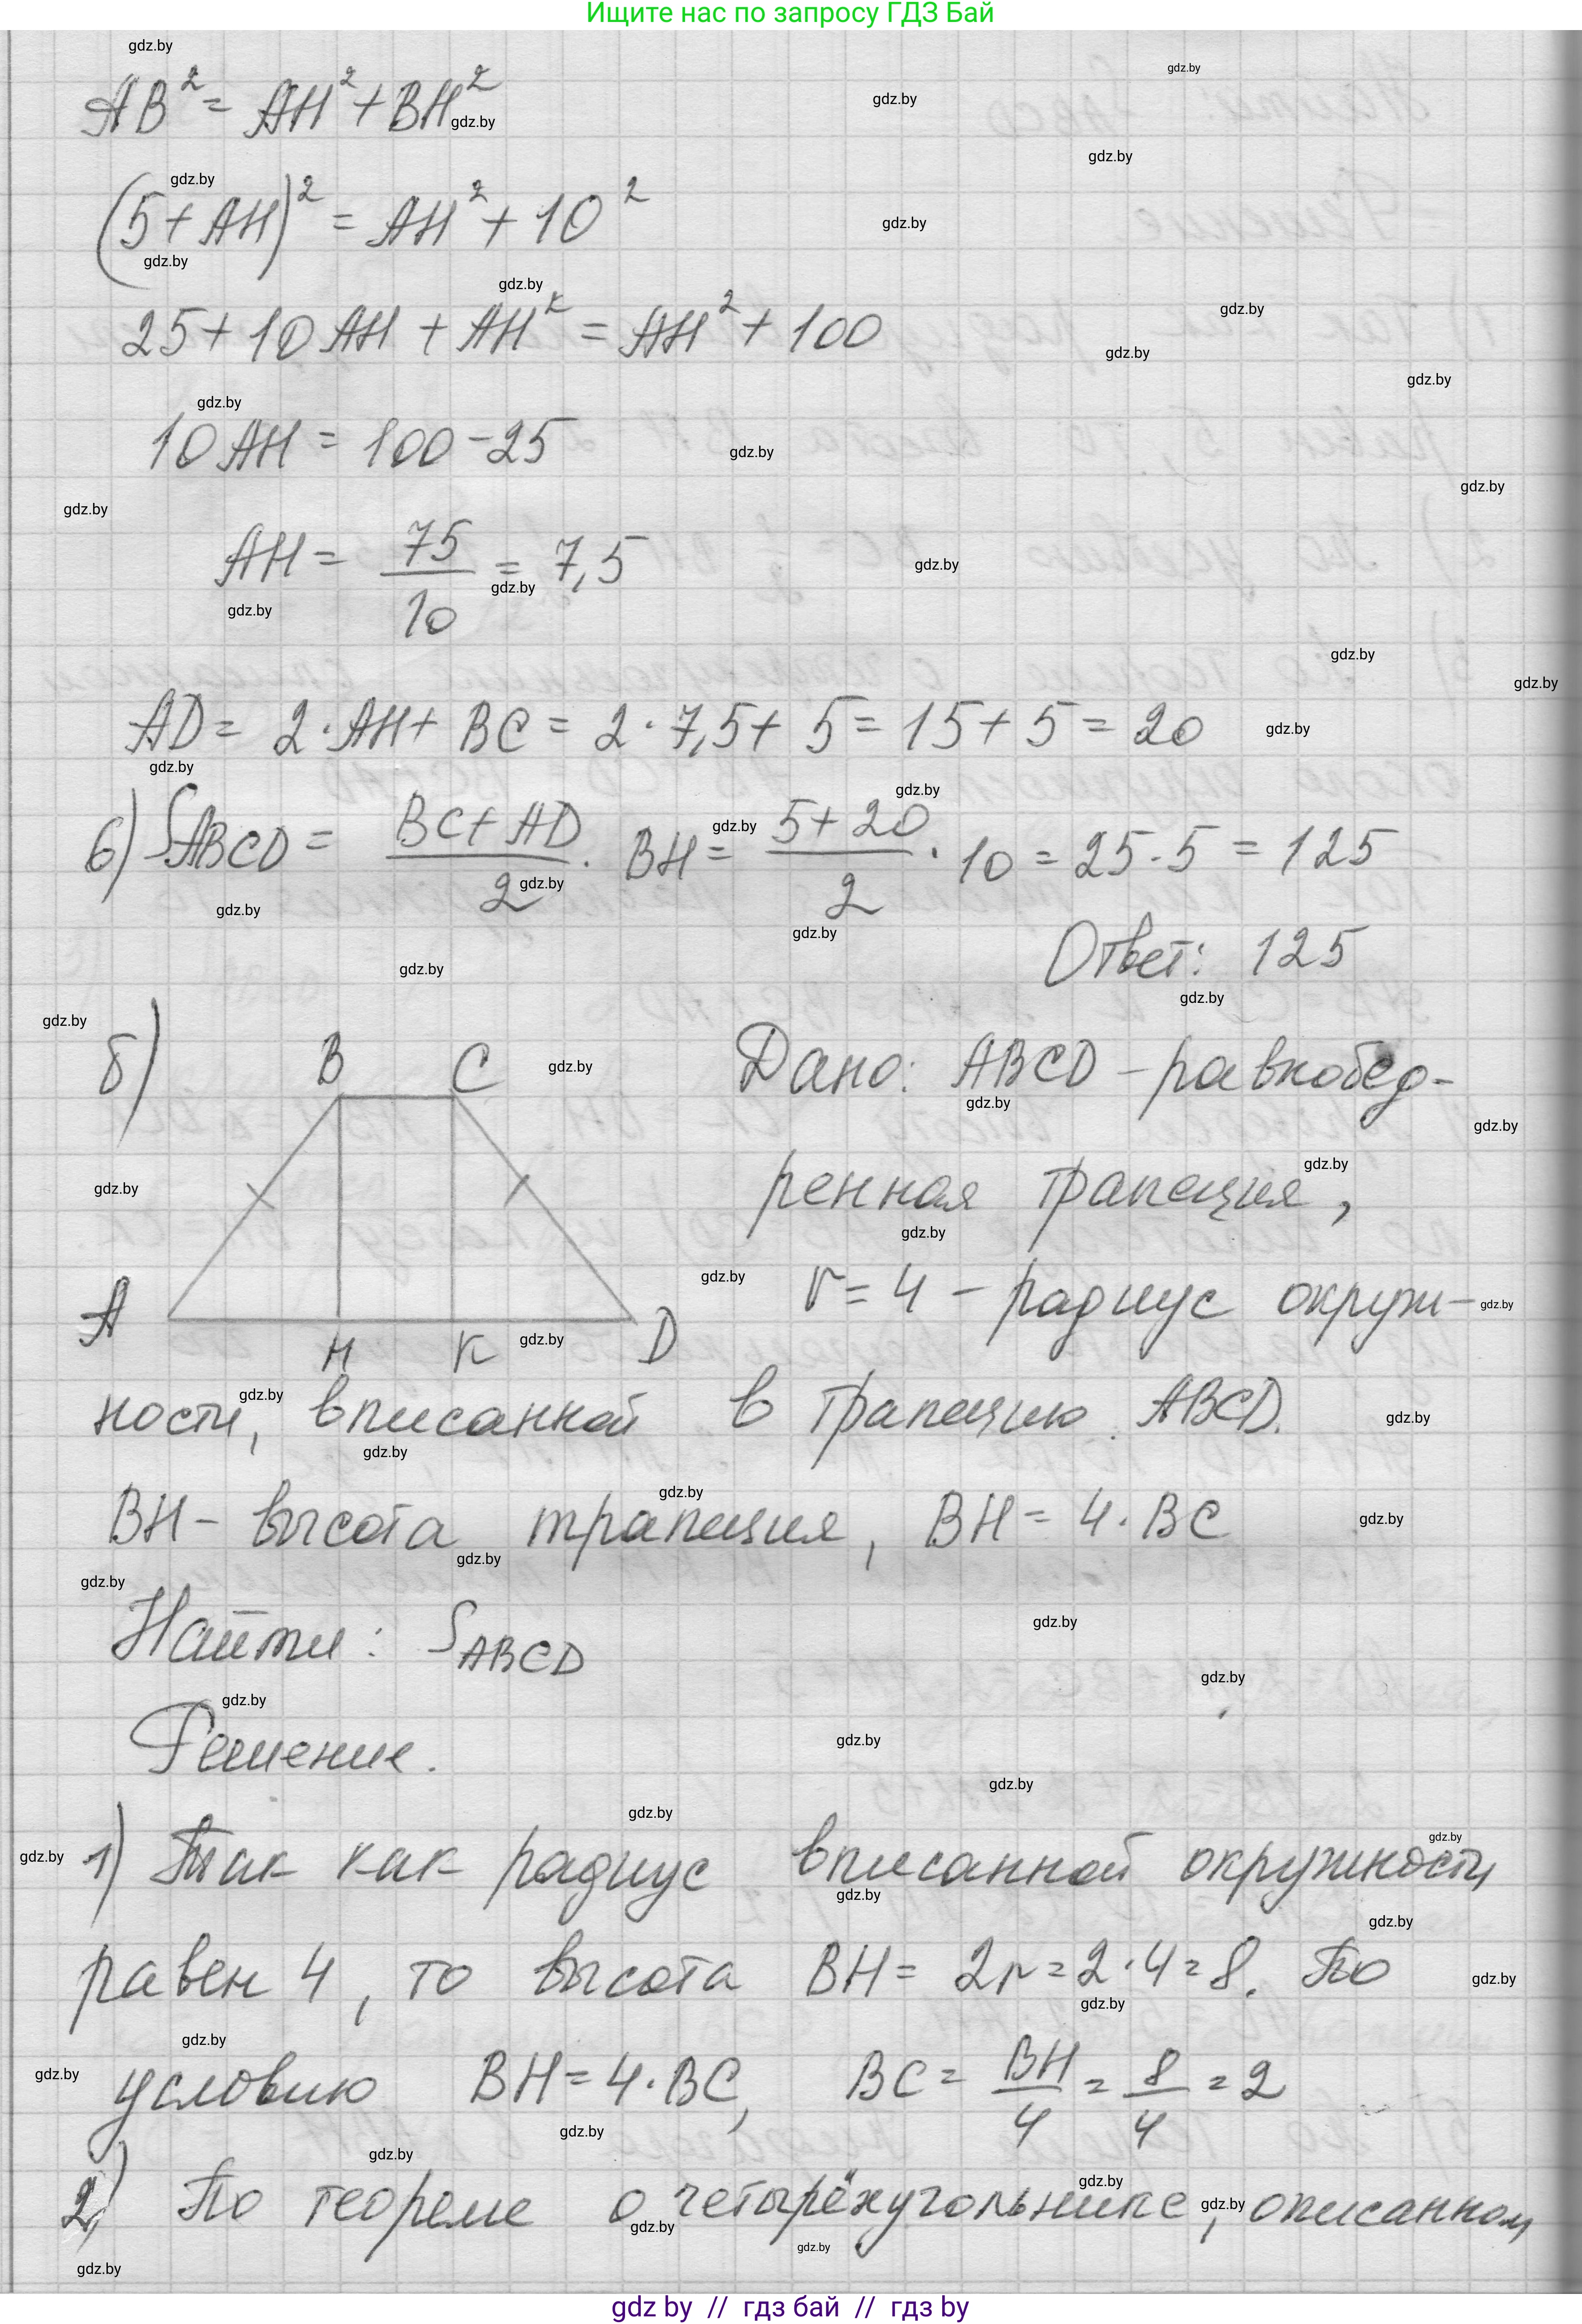 Ищите нас по запросу ГДЗ Бай
AB² = AH² + BH²
(5 + AH)² = AH² + 10²
25 + 10AH + AH² = AH² + 100
10AH = 100 - 25
AH = 75/10 = 7,5
AD = 2·AH + BC = 2·7,5 + 5 = 15 + 5 = 20
6) S_ABCD = (BC + AD)/2 · BH = (5 + 20)/2 · 10 = 25·5 = 125
Ответ: 125
б)
B C
A H K D
Дано: ABCD - равнобед-
ренная трапеция,
r = 4 - радиус окруж-
ности, вписанной в трапецию ABCD.
BH - высота трапеция, BH = 4·BC
Найти: S_ABCD
Решение.
1) Так как радиус вписанной окружности
равен 4, то высота BH = 2r = 2·4 = 8. По
условию BH = 4·BC, BC = BH/4 = 8/4 = 2
2) По теореме о четырёхугольнике, описанном
gdz by // гдз бай // гдз by